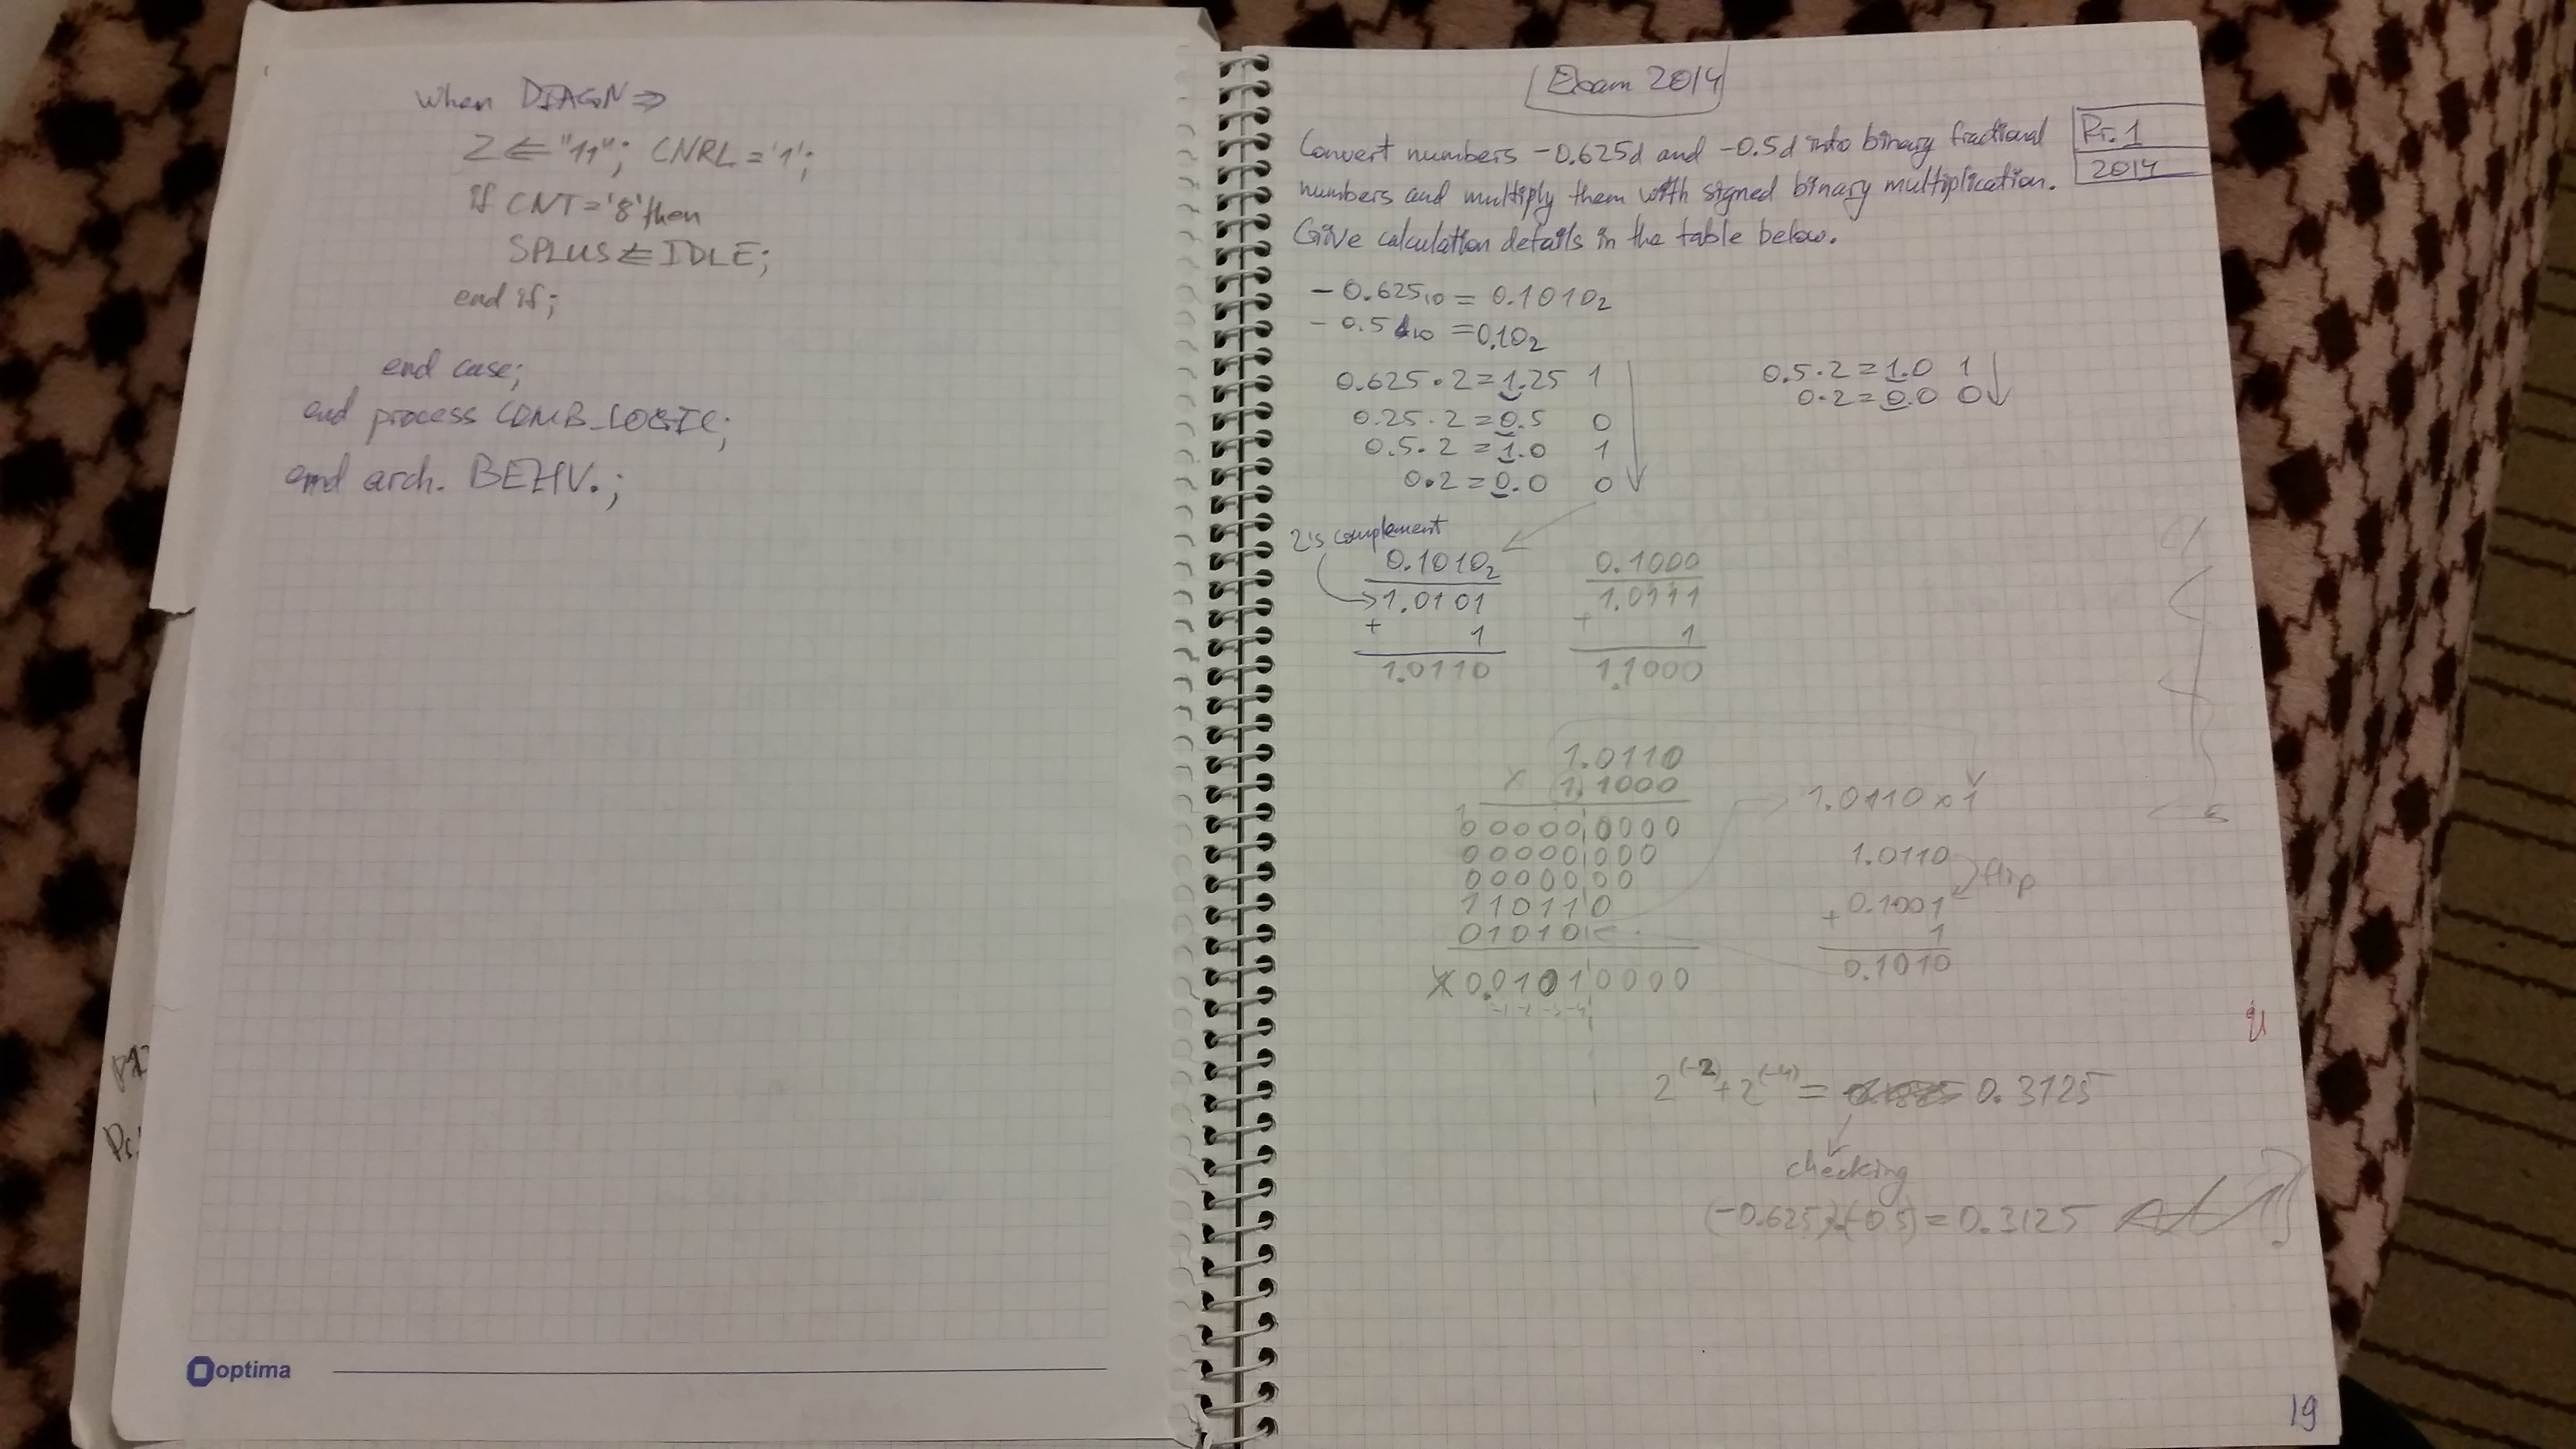 when DIAGN =>
Z <= "11"; CNRL = '1';
if CNT = '8' then
SPLUS <= IDLE;
end if;
end case;
end process COMB_LOGIC;
end arch. BEHV.;
optima
Exam 2014
Pr. 1
2014
Convert numbers -0.625d and -0.5d into binary fractional
numbers and multiply them with signed binary multiplication.
Give calculation details in the table below.
- 0.625₁₀ = 0.1010₂
- 0.5₁₀ = 0.10₂
0.625 · 2 = 1.25 1
0.25 · 2 = 0.5 0
0.5 · 2 = 1.0 1
0 · 2 = 0.0 0
0.5 · 2 = 1.0 1
0 · 2 = 0.0 0
2's complement
0.1010₂
1.0101
+ 1
1.0110
0.1000
1.0111
+ 1
1.1000
1.0110
x 1.1000
000000000
00000000
0000000
110110
01010
0.01010000
-1 -2 -3 -4
1.0110 x 1
1.0110
flip
+ 0.1001
1
0.1010
2^(-2) + 2^(-4) = 0.3125
checking
(-0.625)·(-0.5) = 0.3125
19